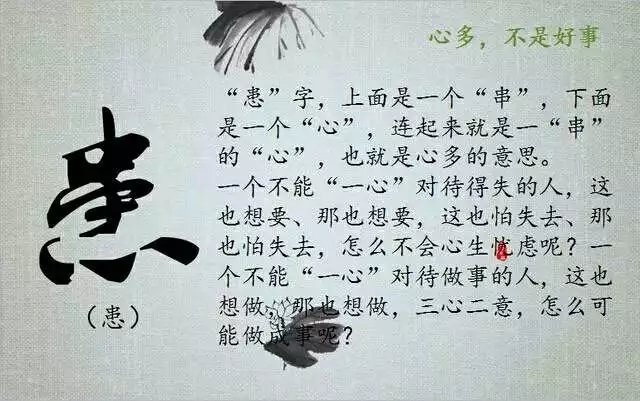 心多，不是好事
“患”字，上面是一个“串”，下面
是一个“心”，连起来就是一“串”
的“心”，也就是心多的意思。
一个不能“一心”对待得失的人，这
也想要、那也想要，这也怕失去、那
也怕失去，怎么不会心生忧虑呢？一
个不能“一心”对待做事的人，这也
想做，那也想做，三心二意，怎么可
能做成事呢？
患
（患）